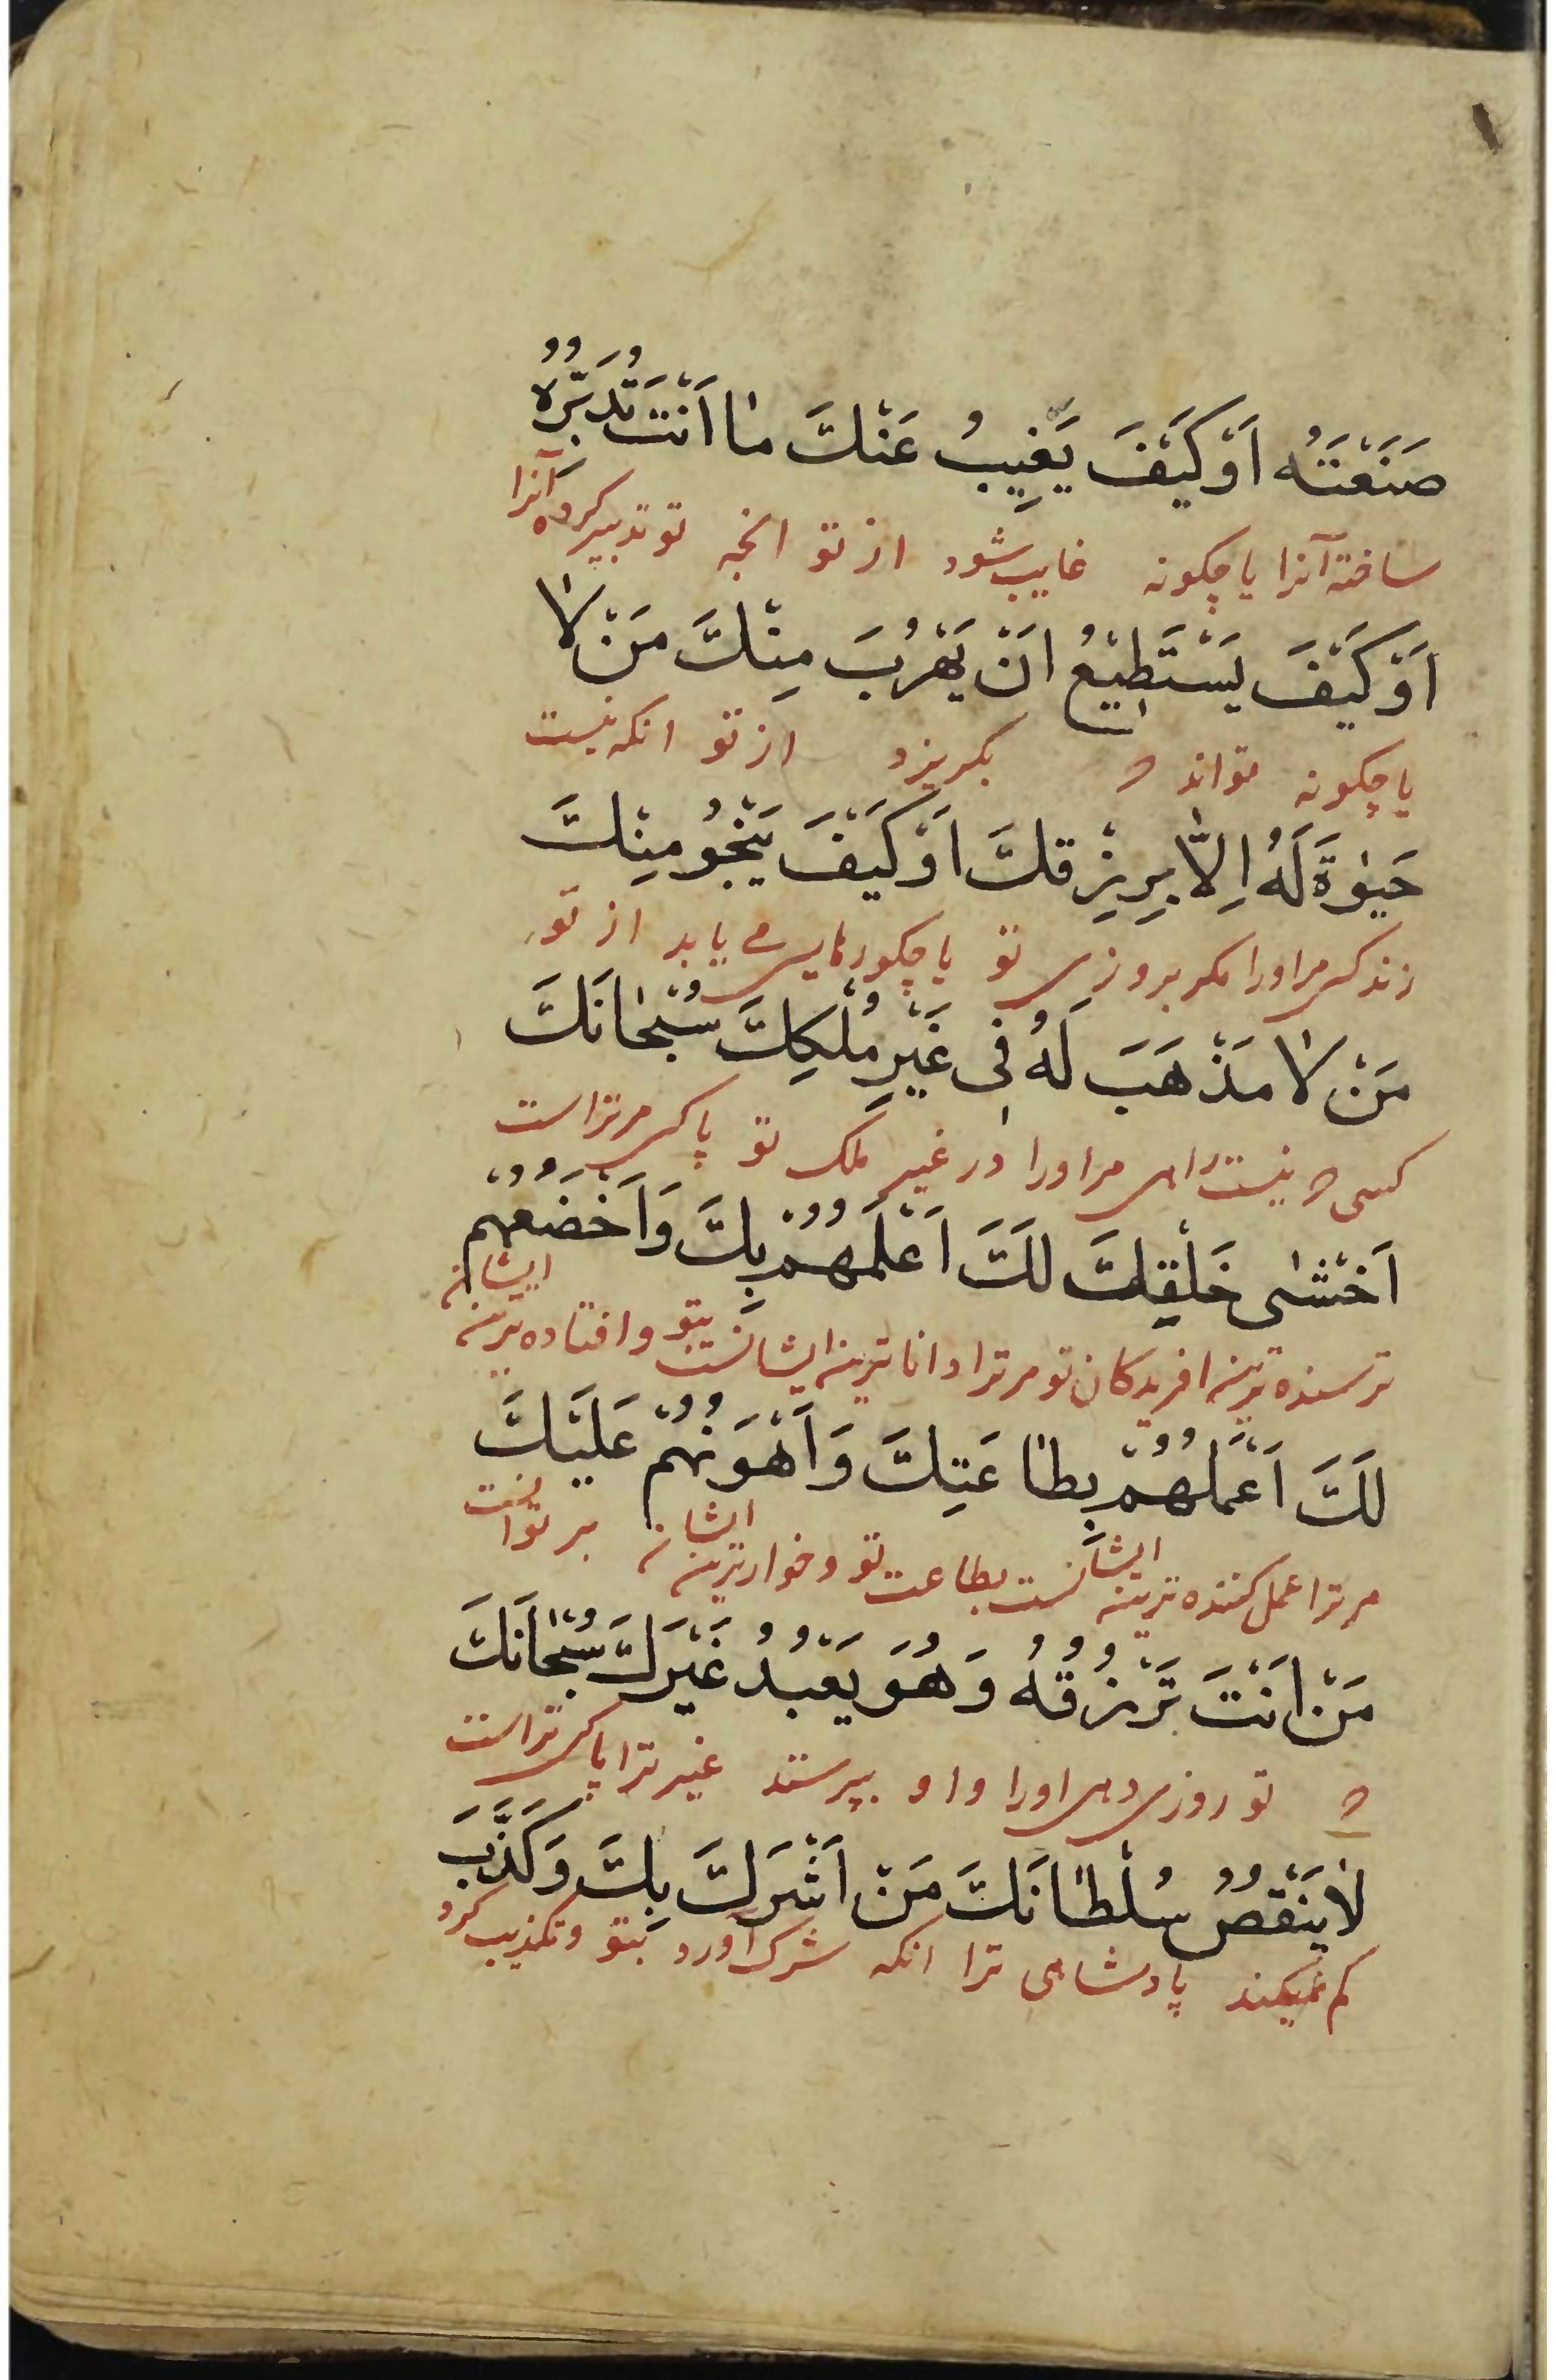 صَنَعْتَهُ اَوْ كَيْفَ يَغِيبُ عَنْكَ مٰا اَنْتَ تُدَبِّرُهُ
ساخته آنرا یا چکونه غایب شود از تو انچه تو تدبیر کرده آنرا
اَوْ كَيْفَ يَسْتَطِيْعُ اَنْ يَهْرُبَ مِنْكَ مَنْ لاٰ
یا چکونه تواند که بکریزد از تو انکه نیست
حَيٰوةَ لَهُ اِلاّٰ بِرِزْقِكَ اَوْ كَيْفَ يَنْجُو مِنْكَ
زندکی مر او را مکر بروزی تو یا چکونه رهایی می یابد از تو
مَنْ لاٰ مَذْهَبَ لَهُ فِى غَيْرِ مُلْكِكَ سُبْحٰانَكَ
کسی که نیست راهی مر او را در غیر ملک تو پاکی مر تراست
اَخْشٰى خَلْقِكَ لَكَ اَعْلَمُهُمْ بِكَ وَاَخْضَعُهُمْ
ترسنده ترین افریدکان تو مر ترا داناترین ایشانست بتو و افتاده ترین ایشان
لَكَ اَعْمَلُهُمْ بِطٰاعَتِكَ وَاَهْوَنُهُمْ عَلَيْكَ
مر ترا عمل کننده ترین ایشانست بطاعت تو و خوارترین ایشان بر تو انست
مَنْ اَنْتَ تَرْزُقُهُ وَهُوَ يَعْبُدُ غَيْرَكَ سُبْحٰانَكَ
که تو روزی دهی او را و او بپرستد غیر ترا پاکی تراست
لاٰ يَنْقُصُ سُلْطٰانَكَ مَنْ اَشْرَكَ بِكَ وَكَذَّبَ
کم نمیکند پادشاهی ترا انکه شرک آورد بتو و تکذیب کرد